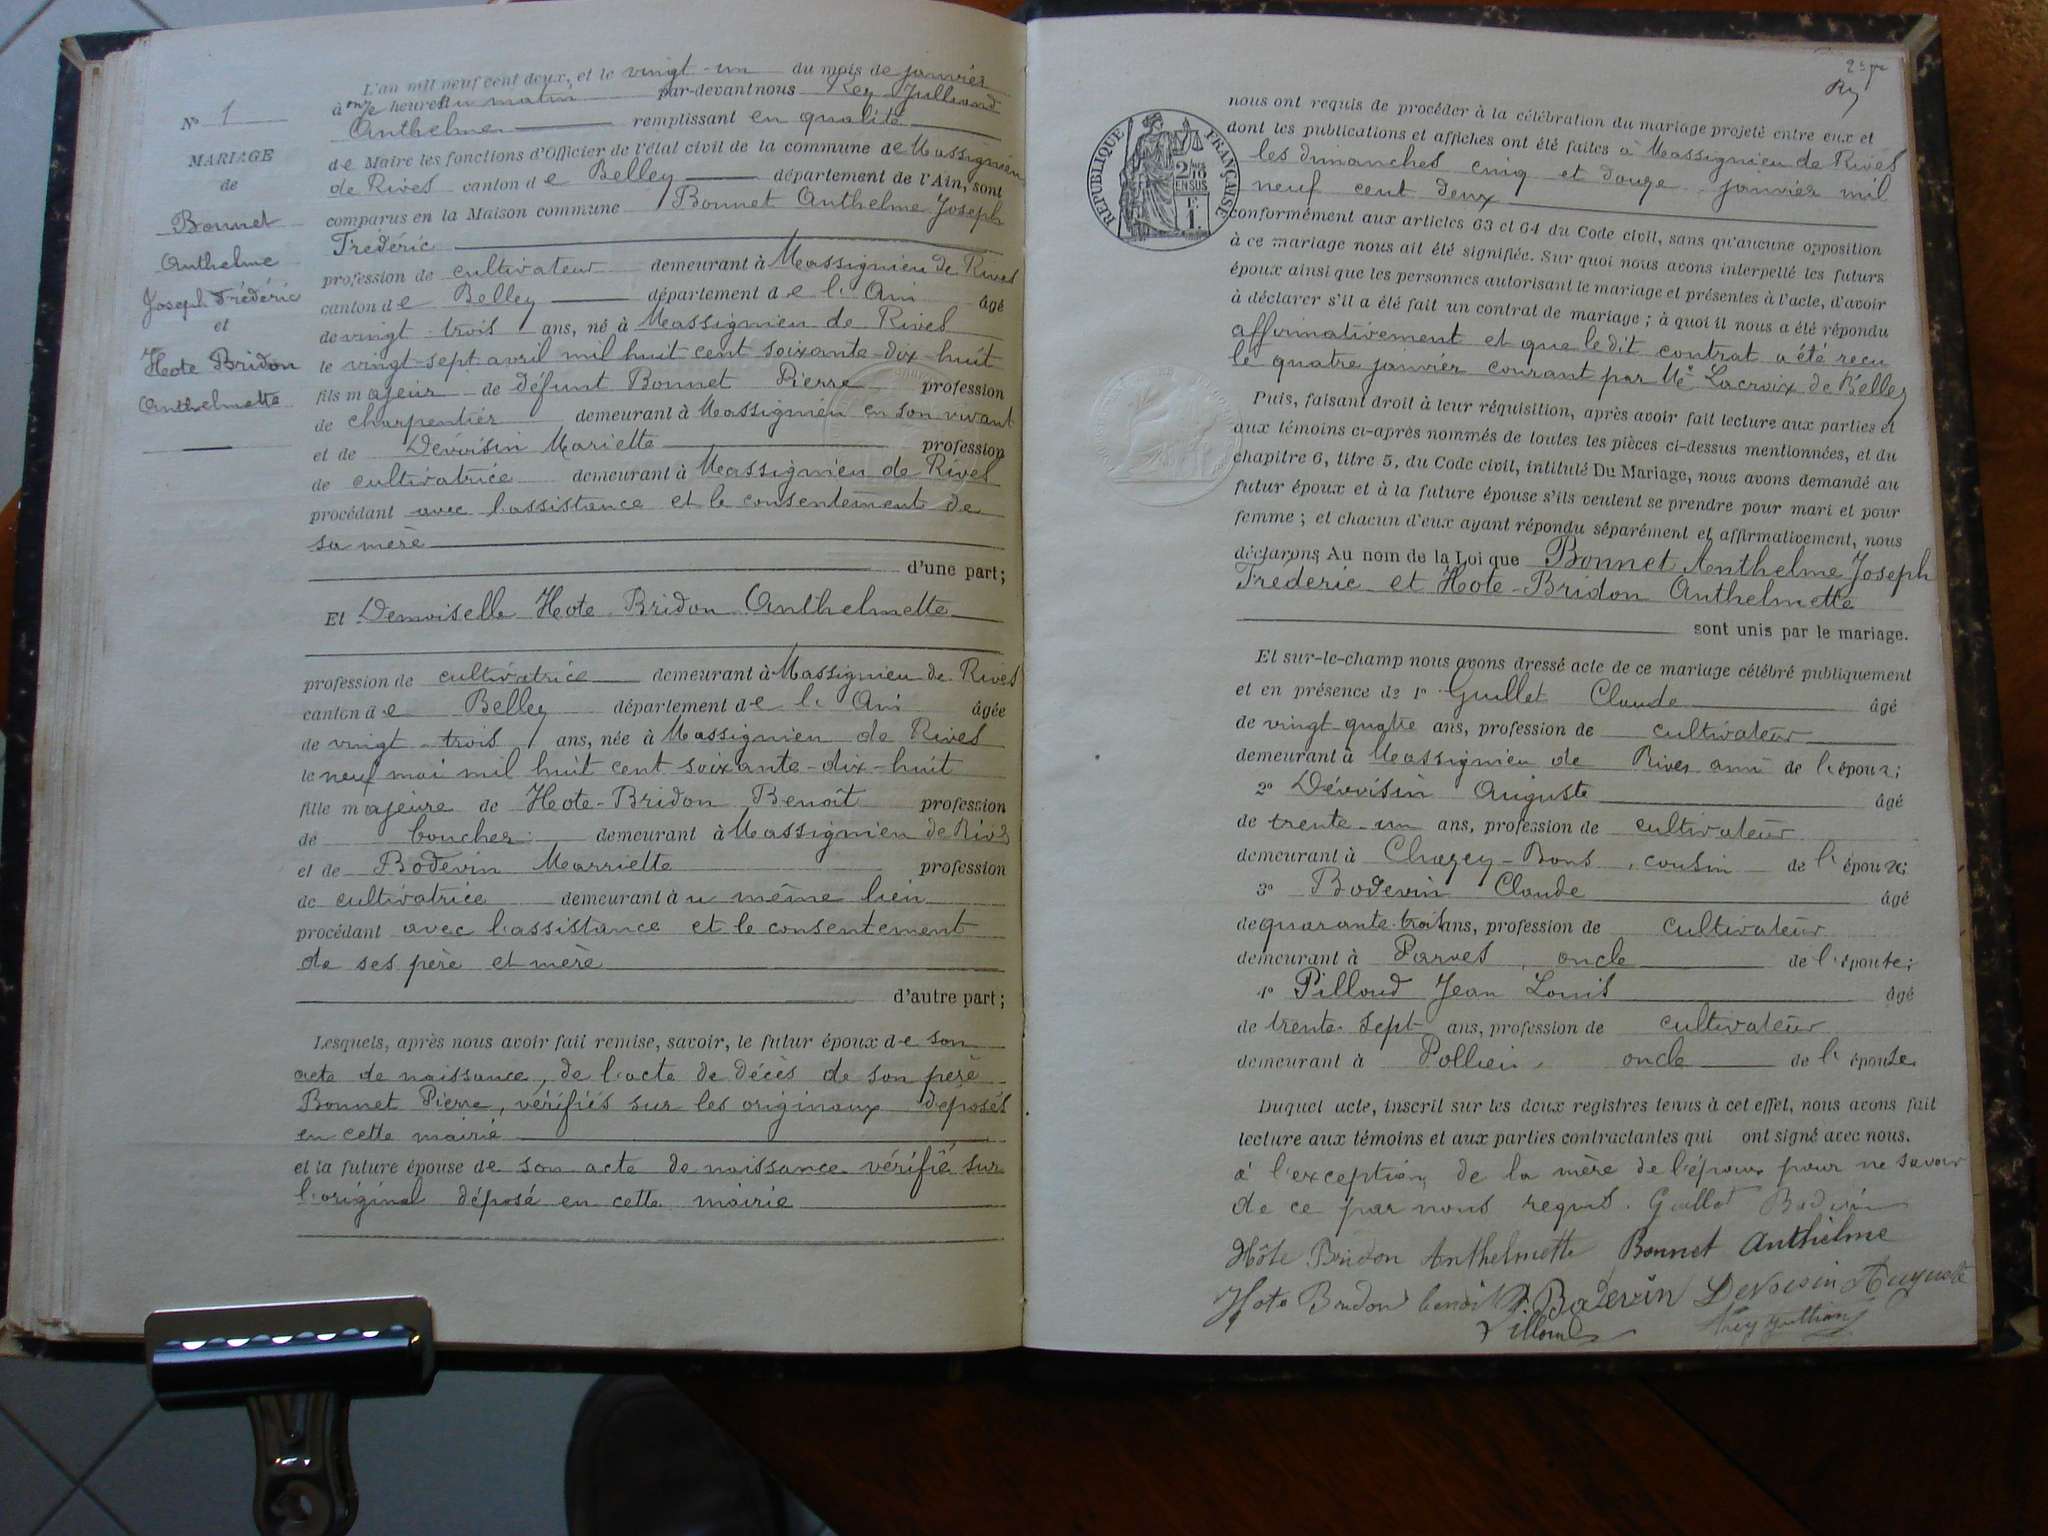 N° 1
MARIAGE
de
Bonnet
Anthelme
Joseph Frédéric
et
Hote Bridon
Anthelmette
L'an mil neuf cent deux, et le vingt-un du mois de janvier
à onze heures du matin par-devant nous Rey Julliand
Anthelme remplissant en qualité
de Maire les fonctions d'Officier de l'état civil de la commune de Massignieu
de Rives canton de Belley département de l'Ain, sont
comparus en la Maison commune Bonnet Anthelme Joseph
Frédéric
profession de cultivateur demeurant à Massignieu de Rives
canton de Belley département de l'Ain âgé
de vingt-trois ans, né à Massignieu de Rives
le vingt-sept avril mil huit cent soixante-dix-huit
fils majeur de défunt Bonnet Pierre profession
de charpentier demeurant à Massignieu en son vivant
et de Dévoisin Mariette profession
de cultivatrice demeurant à Massignieu de Rives
procédant avec l'assistance et le consentement de
sa mère
d'une part;
Et Demoiselle Hote-Bridon Anthelmette
profession de cultivatrice demeurant à Massignieu de Rives
canton de Belley département de l'Ain âgée
de vingt-trois ans, née à Massignieu de Rives
le neuf mai mil huit cent soixante-dix-huit
fille majeure de Hote-Bridon Benoît profession
de boucher demeurant à Massignieu de Rives
et de Bodevin Marriette profession
de cultivatrice demeurant au même lieu
procédant avec l'assistance et le consentement
de ses père et mère
d'autre part;
Lesquels, après nous avoir fait remise, savoir, le futur époux de son
acte de naissance, de l'acte de décès de son père
Bonnet Pierre, vérifiés sur les originaux déposés
en cette mairie
et la future épouse de son acte de naissance vérifié sur
l'original déposé en cette mairie
Rey
REPUBLIQUE FRANÇAISE
2/10
EN SUS
1 F.
nous ont requis de procéder à la célébration du mariage projeté entre eux et
dont les publications et affiches ont été faites à Massignieu de Rives
les dimanches cinq et douze janvier mil
neuf cent deux
conformément aux articles 63 et 64 du Code civil, sans qu'aucune opposition
à ce mariage nous ait été signifiée. Sur quoi nous avons interpellé les futurs
époux ainsi que les personnes autorisant le mariage et présentes à l'acte, d'avoir
à déclarer s'il a été fait un contrat de mariage; à quoi il nous a été répondu
affirmativement et que ledit contrat a été reçu
le quatre janvier courant par Me Lacroix de Belley
Puis, faisant droit à leur réquisition, après avoir fait lecture aux parties et
aux témoins ci-après nommés de toutes les pièces ci-dessus mentionnées, et du
chapitre 6, titre 5, du Code civil, intitulé Du Mariage, nous avons demandé au
futur époux et à la future épouse s'ils veulent se prendre pour mari et pour
femme; et chacun d'eux ayant répondu séparément et affirmativement, nous
déclarons Au nom de la Loi que Bonnet Anthelme Joseph
Fréderic et Hote-Bridon Anthelmette
sont unis par le mariage.
Et sur-le-champ nous avons dressé acte de ce mariage célébré publiquement
et en présence de 1° Guillet Claude âgé
de vingt quatre ans, profession de cultivateur
demeurant à Massignieu de Rives ami de l'époux;
2° Dévoisin Auguste âgé
de trente-un ans, profession de cultivateur
demeurant à Chazey-Bons, cousin de l'époux;
3° Bodevin Claude âgé
de quarante-trois ans, profession de cultivateur
demeurant à Parves, oncle de l'épouse;
4° Pilloud Jean Louis âgé
de trente-sept ans, profession de cultivateur
demeurant à Pollieu, oncle de l'épouse
Duquel acte, inscrit sur les deux registres tenus à cet effet, nous avons fait
lecture aux témoins et aux parties contractantes qui ont signé avec nous.
à l'exception de la mère de l'époux pour ne savoir
de ce par nous requis. Guillet Bodevin
Hôte Bridon Anthelmette Bonnet Anthelme
Hote Bridon benoit Bodevin Devoisin Auguste
Pilloud Rey Julliand